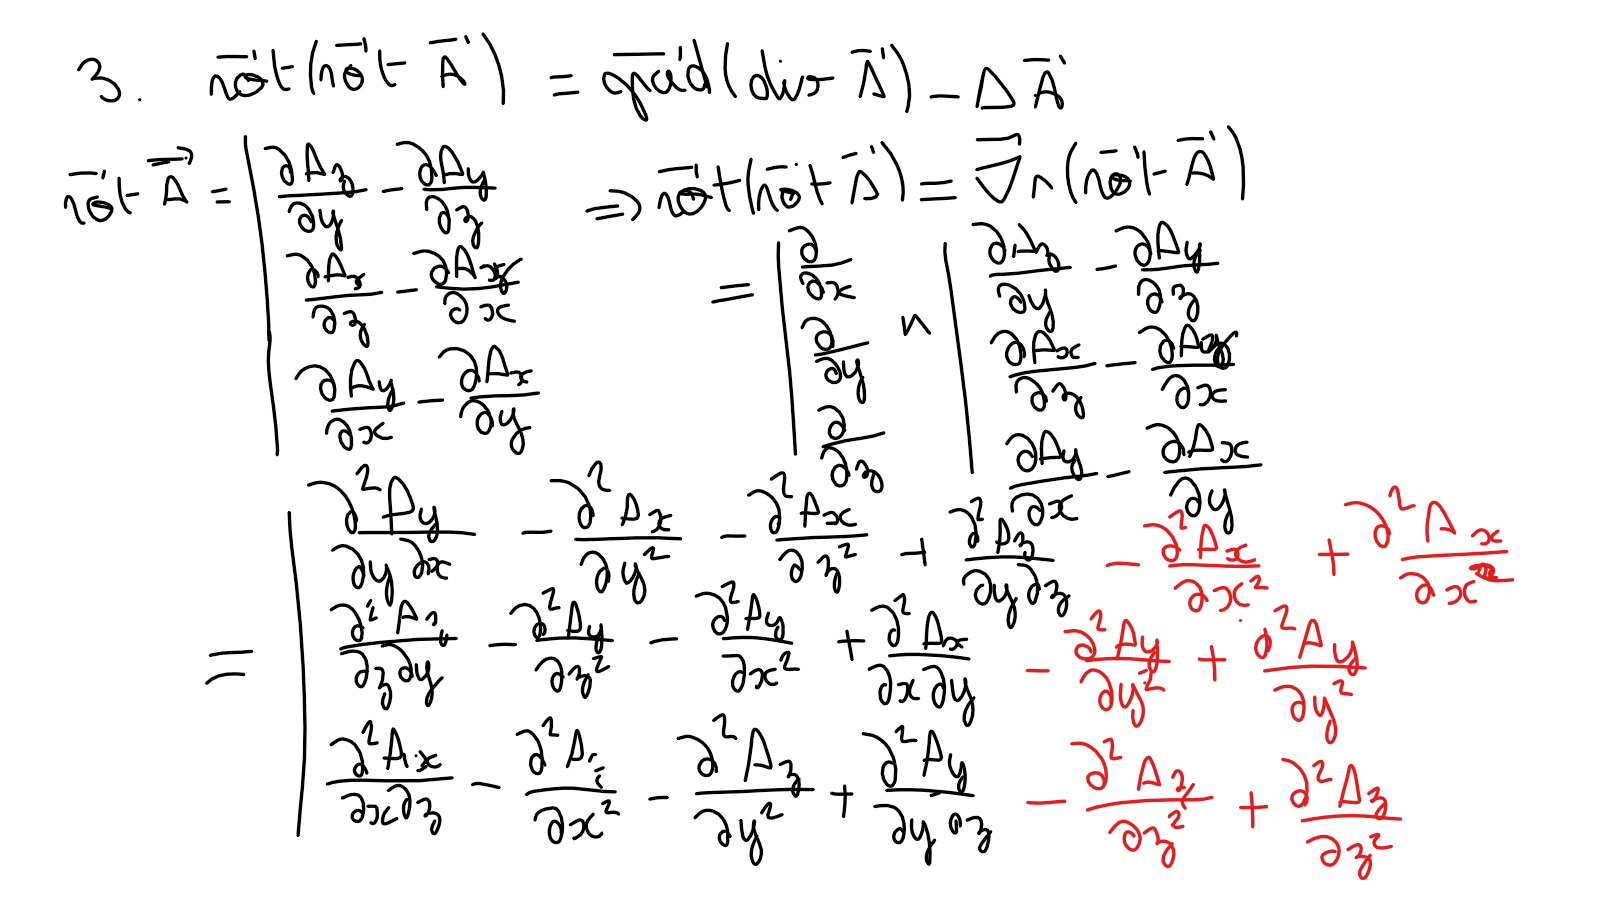 3. rot(rot A) = grad(div A) − Δ A
rot A = | ∂Az/∂y − ∂Ay/∂z ⇒ rot(rot A) = ∇ ∧ (rot A)
∂Ax/∂z − ∂Az/∂x
∂Ay/∂x − ∂Ax/∂y
= | ∂/∂x ∧ | ∂Az/∂y − ∂Ay/∂z
∂/∂y ∂Ax/∂z − ∂Az/∂x
∂/∂z ∂Ay/∂x − ∂Ax/∂y
= | ∂²Ay/∂y∂x − ∂²Ax/∂y² − ∂²Ax/∂z² + ∂²Az/∂y∂z − ∂²Ax/∂x² + ∂²Ax/∂x²
∂²Az/∂z∂y − ∂²Ay/∂z² − ∂²Ay/∂x² + ∂²Ax/∂x∂y − ∂²Ay/∂y² + ∂²Ay/∂y²
∂²Ax/∂x∂z − ∂²Az/∂x² − ∂²Az/∂y² + ∂²Ay/∂y∂z − ∂²Az/∂z² + ∂²Az/∂z²